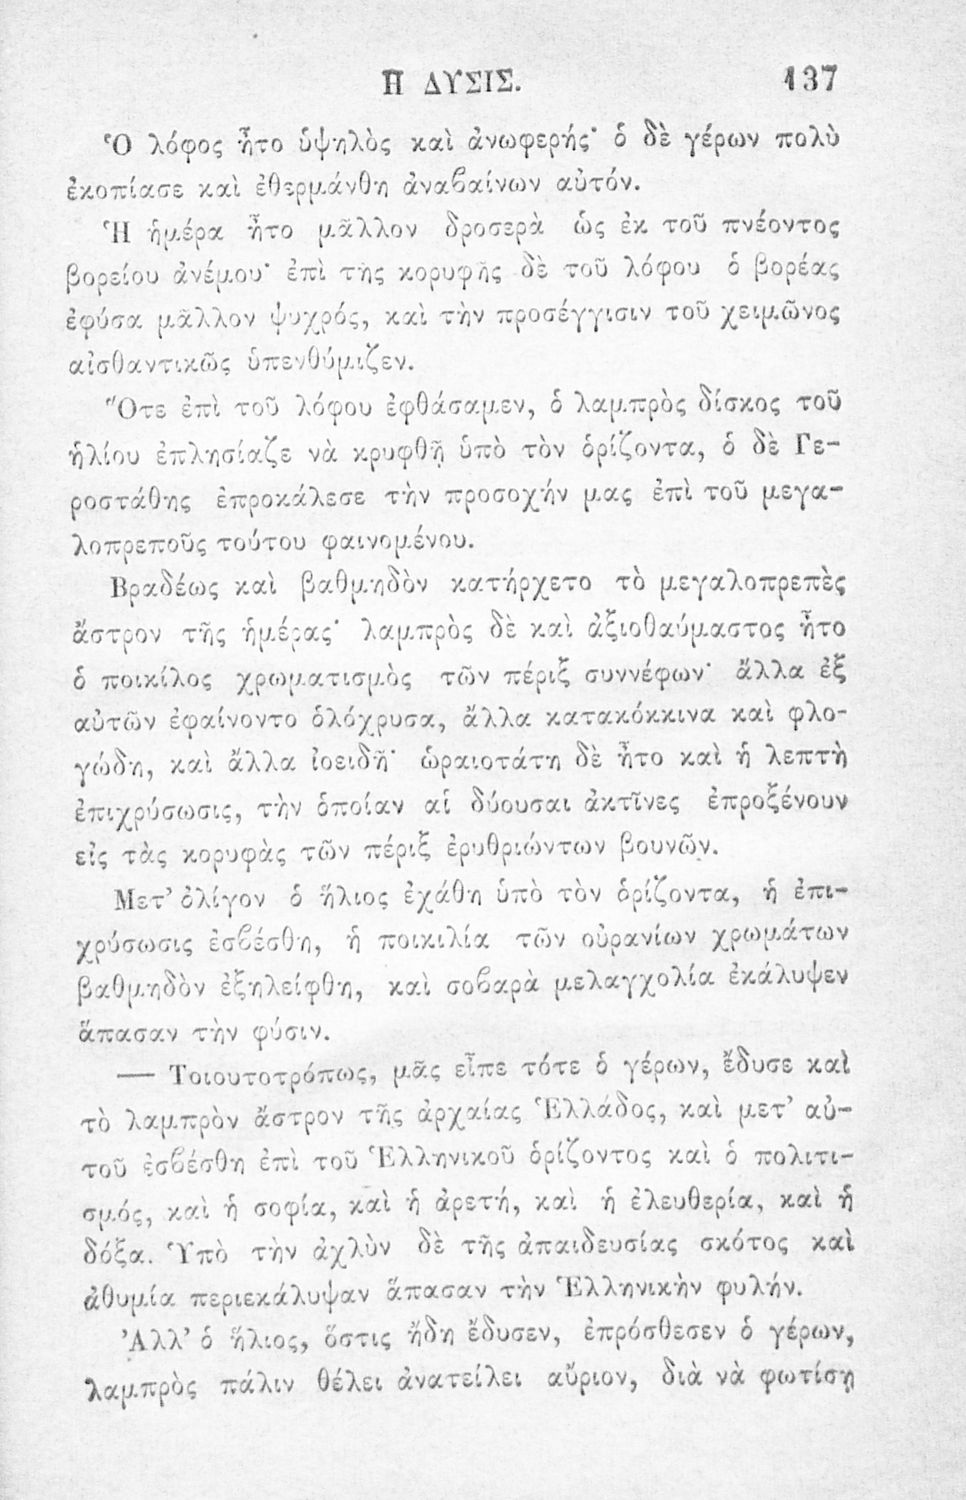 Ἡ ΔΥΣΙΣ. 137
Ὁ λόφος ἦτο ὑψηλὸς καὶ ἀνωφερής· ὁ δὲ γέρων πολὺ
ἐκοπίασε καὶ ἐθερμάνθη ἀναβαίνων αὐτόν.
Ἡ ἡμέρα ἦτο μᾶλλον δροσερὰ ὡς ἐκ τοῦ πνέοντος
βορείου ἀνέμου· ἐπὶ τῆς κορυφῆς δὲ τοῦ λόφου ὁ βορέας
ἐφύσα μᾶλλον ψυχρός, καὶ τὴν προσέγγισιν τοῦ χειμῶνος
αἰσθαντικῶς ὑπενθύμιζεν.
Ὅτε ἐπὶ τοῦ λόφου ἐφθάσαμεν, ὁ λαμπρὸς δίσκος τοῦ
ἡλίου ἐπλησίαζε νὰ κρυφθῇ ὑπὸ τὸν ὁρίζοντα, ὁ δὲ Γε-
ροστάθης ἐπροκάλεσε τὴν προσοχήν μας ἐπὶ τοῦ μεγα-
λοπρεποῦς τούτου φαινομένου.
Βραδέως καὶ βαθμηδὸν κατήρχετο τὸ μεγαλοπρεπὲς
ἄστρον τῆς ἡμέρας· λαμπρὸς δὲ καὶ ἀξιοθαύμαστος ἦτο
ὁ ποικίλος χρωματισμὸς τῶν πέριξ συννέφων· ἄλλα ἐξ
αὐτῶν ἐφαίνοντο ὁλόχρυσα, ἄλλα κατακόκκινα καὶ φλο-
γώδη, καὶ ἄλλα ἰοειδῆ· ὡραιοτάτη δὲ ἦτο καὶ ἡ λεπτὴ
ἐπιχρύσωσις, τὴν ὁποίαν αἱ δύουσαι ἀκτῖνες ἐπροξένουν
εἰς τὰς κορυφὰς τῶν πέριξ ἐρυθριώντων βουνῶν.
Μετ' ὀλίγον ὁ ἥλιος ἐχάθη ὑπὸ τὸν ὁρίζοντα, ἡ ἐπι-
χρύσωσις ἐσβέσθη, ἡ ποικιλία τῶν οὐρανίων χρωμάτων
βαθμηδὸν ἐξηλείφθη, καὶ σοβαρὰ μελαγχολία ἐκάλυψεν
ἅπασαν τὴν φύσιν.
— Τοιουτοτρόπως, μᾶς εἶπε τότε ὁ γέρων, ἔδυσε καὶ
τὸ λαμπρὸν ἄστρον τῆς ἀρχαίας Ἑλλάδος, καὶ μετ' αὐ-
τοῦ ἐσβέσθη ἐπὶ τοῦ Ἑλληνικοῦ ὁρίζοντος καὶ ὁ πολιτι-
σμός, καὶ ἡ σοφία, καὶ ἡ ἀρετή, καὶ ἡ ἐλευθερία, καὶ ἡ
δόξα. Ὑπὸ τὴν ἀχλὺν δὲ τῆς ἀπαιδευσίας σκότος καὶ
ἀθυμία περιεκάλυψαν ἅπασαν τὴν Ἑλληνικὴν φυλήν.
Ἀλλ' ὁ ἥλιος, ὅστις ἤδη ἔδυσεν, ἐπρόσθεσεν ὁ γέρων,
λαμπρὸς πάλιν θέλει ἀνατείλει αὔριον, διὰ νὰ φωτίσῃ